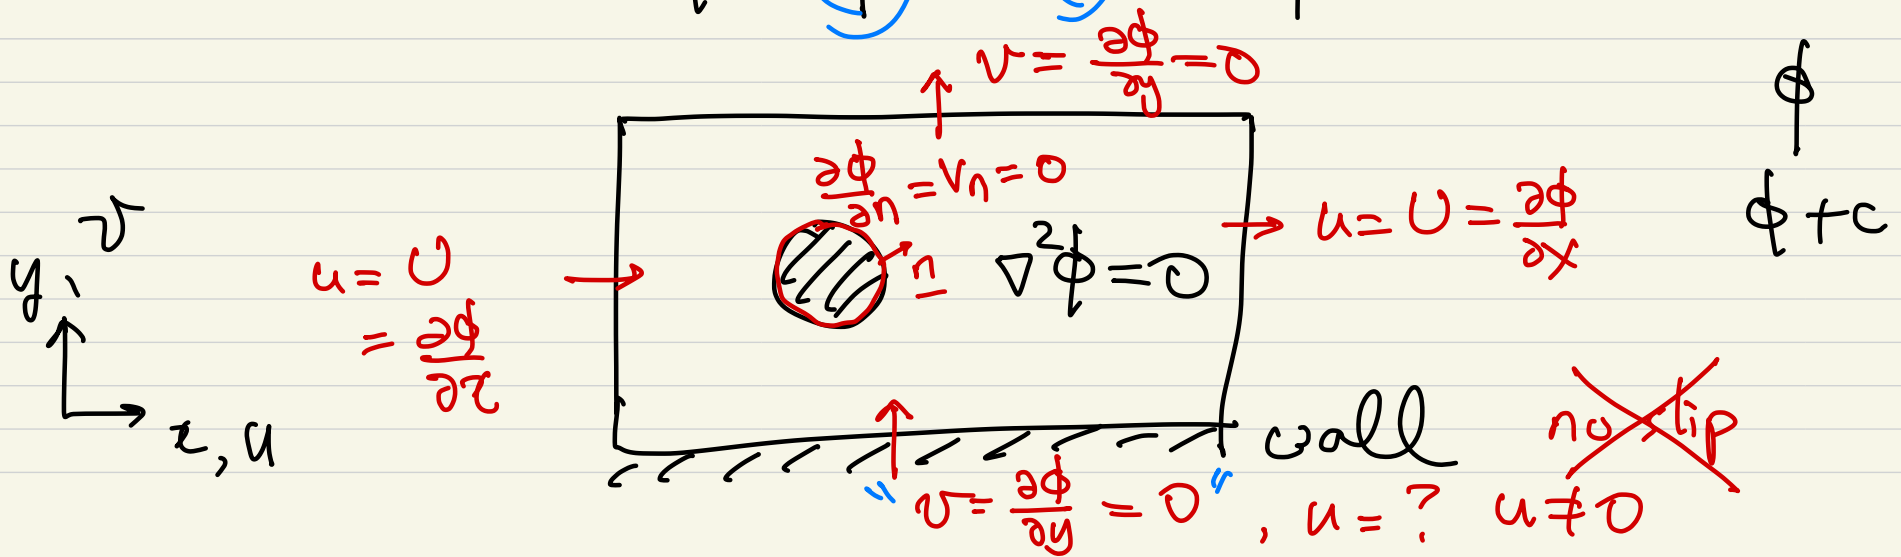 v = ∂ϕ/∂y = 0
ϕ
∂ϕ/∂n = Vn = 0
ϕ + c
v
u = U = ∂ϕ/∂x
y,
u = U
n
∇²ϕ = 0
= ∂ϕ/∂x
x, u
wall
no slip
v = ∂ϕ/∂y = 0, u = ? u ≠ 0